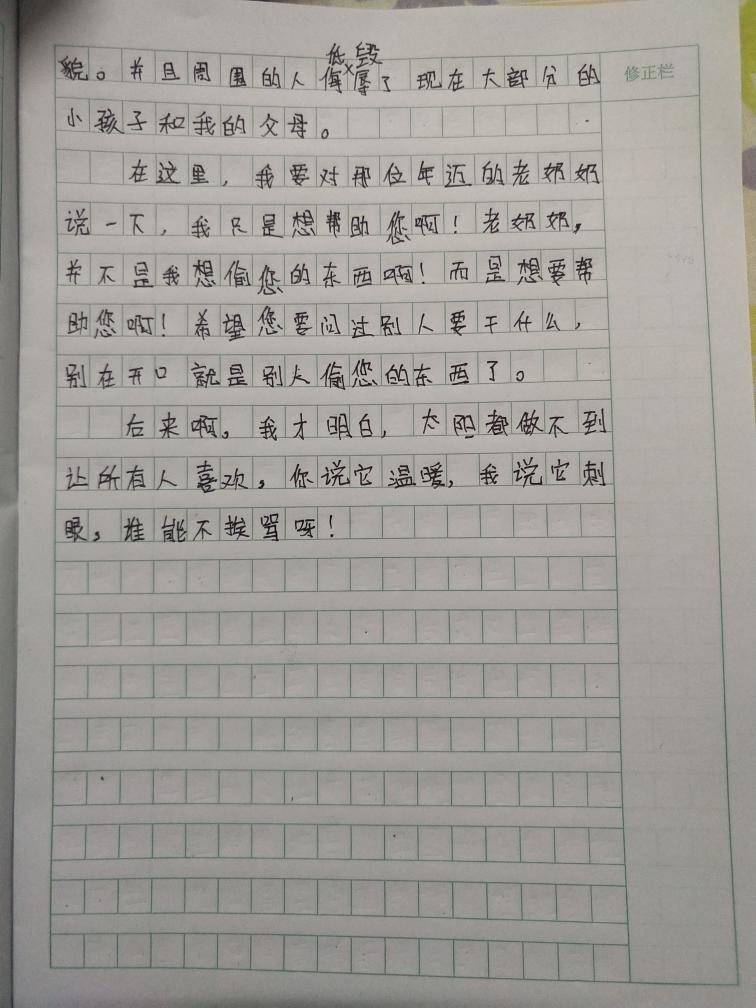 貌。并且周围的人侮辱了现在大部分的 修正栏
诋毁
小孩子和我的父母。
在这里，我要对那位年近的老奶奶
说一下，我只是想帮助您啊！老奶奶，
并不是我想偷您的东西啊！而是想要帮
助您啊！希望您要问过别人要干什么，
别在开口就是别人偷您的东西了。
后来啊，我才明白，太阳都做不到
让所有人喜欢，你说它温暖，我说它刺
眼，谁能不挨骂呀！